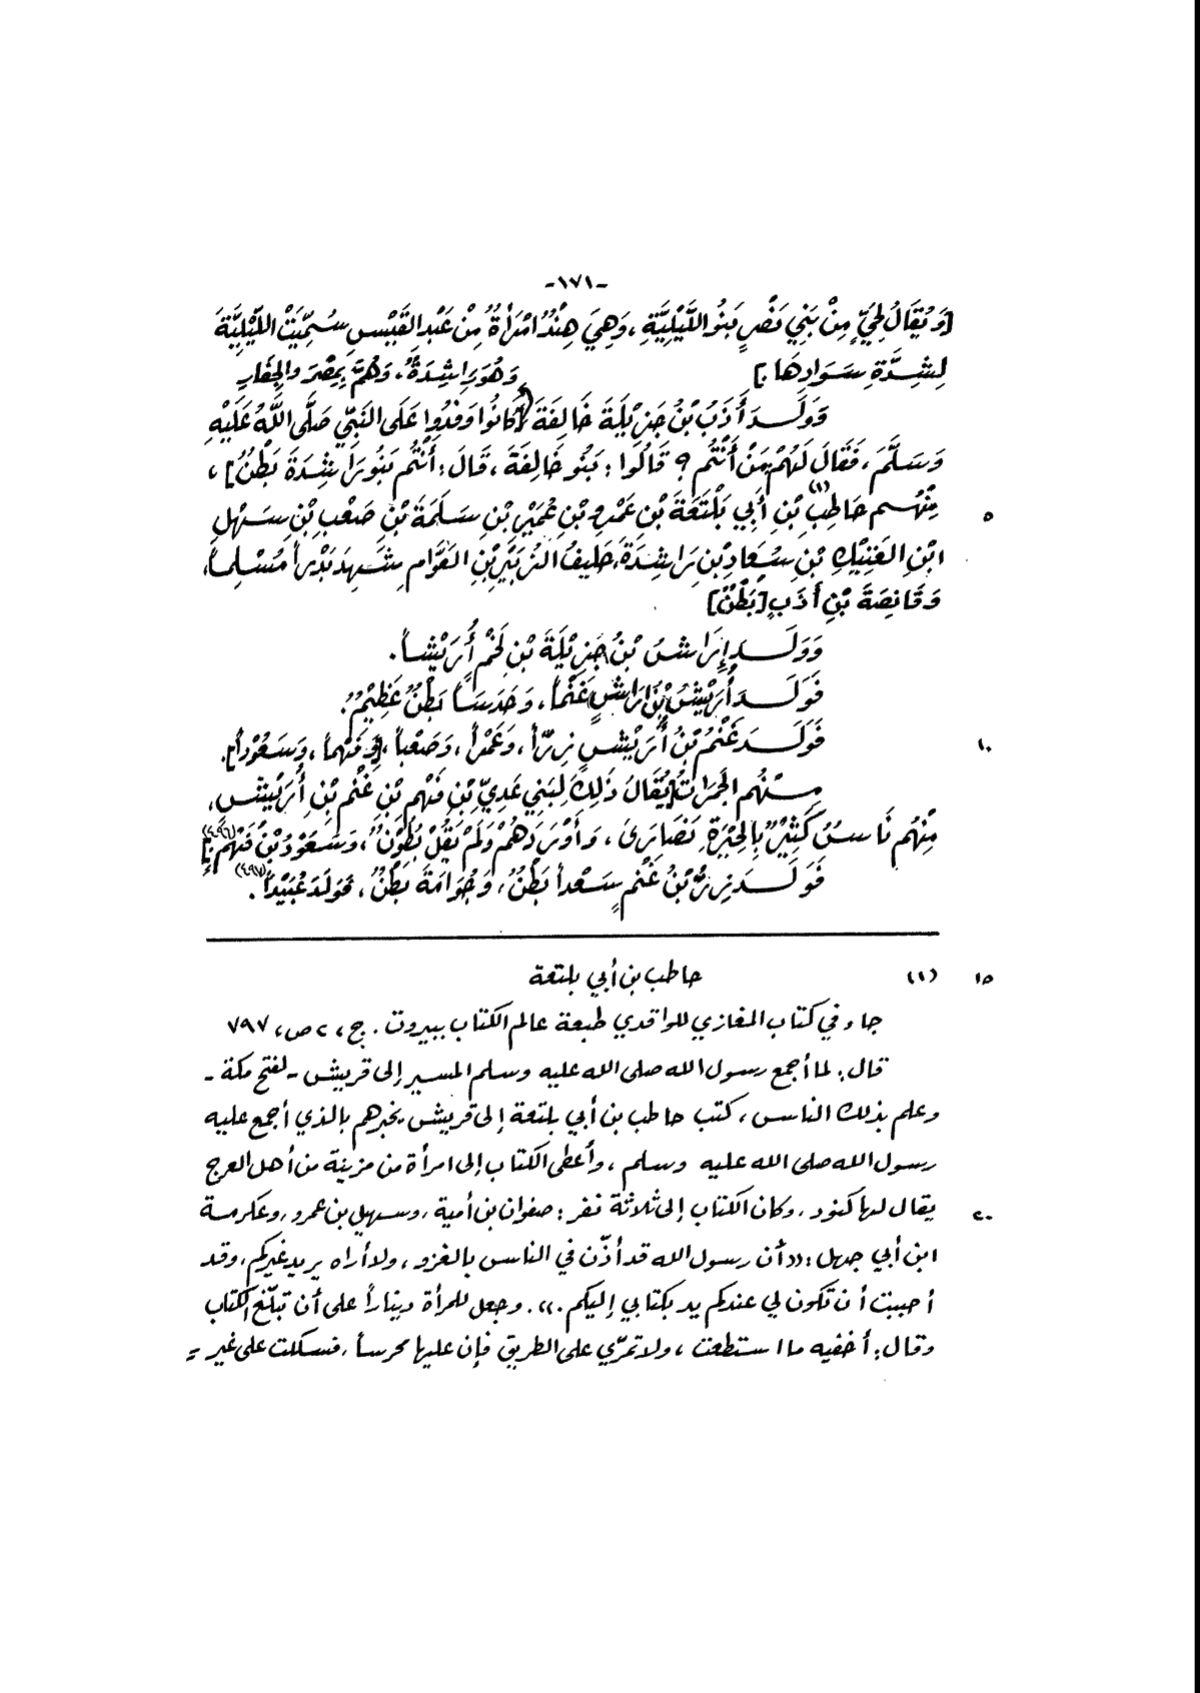 -١٧١-
[وَيُقَالُ لِحَيٍّ مِنْ بَنِي نَصْرٍ بَنُو اللَّيْلِيَّةِ، وَهِيَ هِنْدُ امْرَأةٌ مِنْ عَبْدِ القَيْسِ سُمِّيَتْ اللَّيْلِيَّةَ
لِشِدَّةِ سَوَادِهَا.] وَهُوَ رَاشِدَةُ، وَهُمْ بِمِصْرَ والجِفَارِ
وَوَلَدَ أَذَبُ بْنُ جَزِيْلَةَ خَالِفَةَ [كَانُوا وَفَدُوا عَلَى النَبِّي صَلَّى اللَّهُ عَلَيْهِ
وَسَلَّمَ، فَقَالَ لَهُمْ مَنْ أَنْتُم؟ قَالُوا: بَنُو خَالِفَةَ، قَالَ: أَنْتُم بَنُو رَاشِدَةَ بَطْنٌ]،
مِنْهُم حَاطِبُ (١) بْنِ أَبِي بَلْتَعَةَ بْنِ عَمْرِو بْنِ عُمَيْرِ بْنِ سَلَمَةَ بْنِ صَعْبِ بْنِ سَهْلِ ٥
ابْنِ العَتِيْكِ بْنِ سُعَادِ بْنِ رَاشِدَةَ، حَلِيفُ الزُبَيْرِ بْنِ العَوَّام شَهِدَ بَدْراً مُسْلِماً،
وَقَانِصَةَ بْنِ أَذَبٍ [بَطْنٌ]
وَوَلَدَ إِرَاشُ بْنُ جَزِيْلَةَ بْنِ لَخْمٍ أُرَيْشاً.
فَوَلَدَ أُرَيْشُ بْنُ إِرَاشٍ غَنْماً، وَحَدَساً بَطْنٌ عَظِيْمٌ.
فَوَلَدَ غَنْمُ بْنُ أُرَيْشٍ نِزّاً، وَعَمْراً، وَصَعْباً، [وَفَهْماً، وَسَعُوْداً]. ١٠
مِنْهُم الجَمَرَاتُ [يُقَالُ ذَلِكَ لِبَنِي عَدِيِّ بْنِ فَهْمِ بْنِ غَنْمِ بْنِ أُرَيْشٍ،
مِنْهُم نَاسٌ كَثِيْرٌ بِالحِيْرَةِ نَصَارَى، وَأَوْرَدَهُمْ وَلَمْ يَقُلْ بُطُوْنٌ، وَسَعُوْدُ بْنُ فَهْمٍ] (٤٩٦)
فَوَلَدَ نِزُّ بْنُ غَنْمٍ سَعْداً بَطْنٌ، وَجُوَامَةَ بَطْنٌ، فَوَلَدَ عُبَيْداً (٤٩٧).
(١) حاطب بن أبي بلتعة ١٥
جاء في كتاب المغازي للواقدي طبعة عالم الكتاب ببيروت. ج، ٢ ص، ٧٩٧
قال: لما أجمع رسول الله صلى الله عليه وسلم المسير إلى قريش - لفتح مكة -
وعلم بذلك الناس، كتب حاطب بن أبي بلتعة إلى قريش يخبرهم بالذي أجمع عليه
رسول الله صلى الله عليه وسلم، وأعطى الكتاب إلى امرأة من مزينة من أهل العرج
يقال لها كنود، وكان الكتاب إلى ثلاثة نفر: صفوان بن أمية، وسهيل بن عمرو، وعكرمة ٢٠
ابن أبي جهل: «أن رسول الله قد أذّن في الناس بالغزو، ولا أراه يريد غيركم، وقد
أحببت أن تكون لي عندكم يد بكتابي إليكم.». وجعل للمرأة ديناراً على أن تبلّغ الكتاب
وقال: أخفيه ما استطعت، ولا تمرّي على الطريق فإن عليها محرساً، فسلكت على غير =